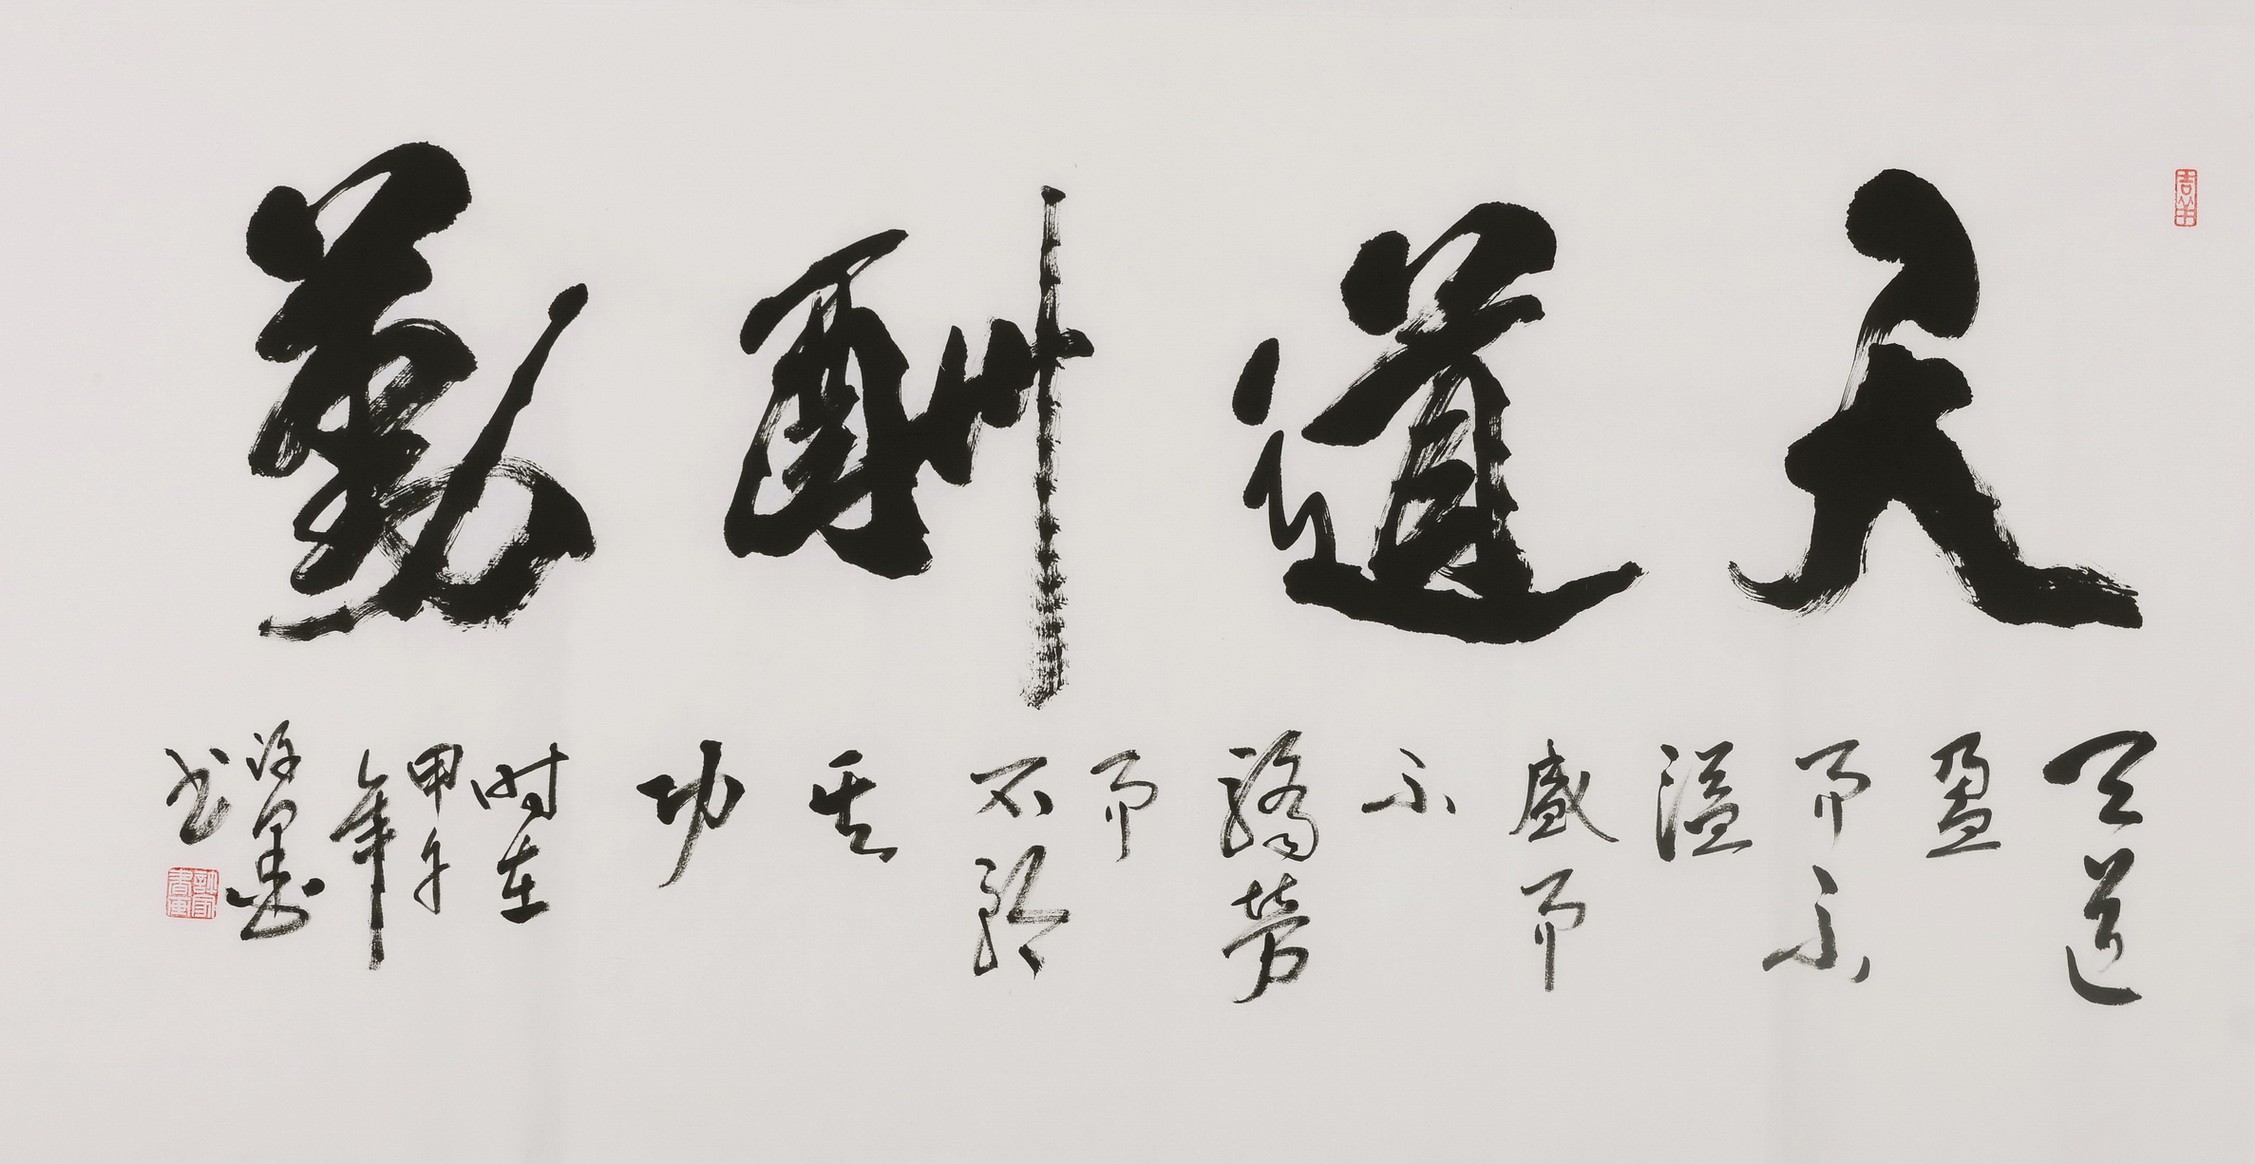 天道酬勤
天道
盈
而不
溢
盛而
不
骄劳
而
不矜
其
功
时在
甲午
年
书